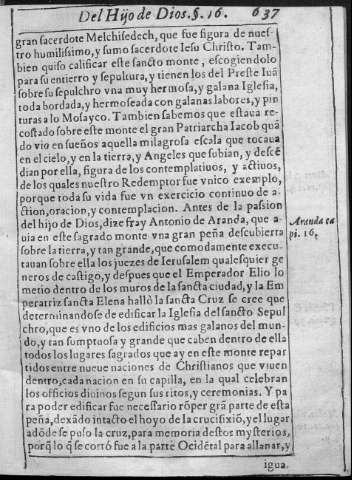 Del Hijo de Dios. §. 16. 637
gran sacerdote Melchisedech, que fue figura de nues-
tro humilissimo, y sumo sacerdote Iesu Christo. Tam-
bien quiso calificar este sancto monte, escogiendolo
para su entierro y sepultura, y tienen los del Preste Iuã
sobre su sepulchro vna muy hermosa, y galana Iglesia,
toda bordada, y hermoseada con galanas labores, y pin
turas a lo Mosayco. Tambien sabemos que estaua re-
costado sobre este monte el gran Patriarcha Iacob quã
do vio en sueños aquella milagrosa escala que tocaua
en el cielo, y en la tierra, y Angeles que subian, y descẽ
dian por ella, figura de los contemplatiuos, y actiuos,
de los quales nuestro Redemptor fue vnico exemplo,
porque toda su vida fue vn exercicio continuo de a-
ction, oracion, y contemplacion. Antes de la passion
del hijo de Dios, dize fray Antonio de Aranda, que a-
uia en este sagrado monte vna gran peña descubierta
sobre la tierra, y tan grande, que comodamente execu-
tauan sobre ella los juezes de Ierusalem qualesquier ge
neros de castigo, y despues que el Emperador Elio lo
metio dentro de los muros de la sancta ciudad, y la Em
peratriz sancta Elena hallò la sancta Cruz se cree que
determinandose de edificar la Iglesia del sancto Sepul
chro, que es vno de los edificios mas galanos del mun-
do, y tan sumptuosa y grande que caben dentro de ella
todos los lugares sagrados que ay en este monte repar
tidos entre nueue naciones de Christianos que viuen
dentro, cada nacion en su capilla, en la qual celebran
los officios diuinos segun sus ritos, y ceremonias. Y pa
ra poder edificar fue necessario rõper grã parte de esta
peña, dexãdo intacto el hoyo de la crucifixiõ, y el lugar
adõde se puso la cruz, para memoria destos mysterios,
porq̃ lo q̃ se cortò fue a la parte Ocidẽtal para allanar, y
igua.
Aranda ca
pi. 16,